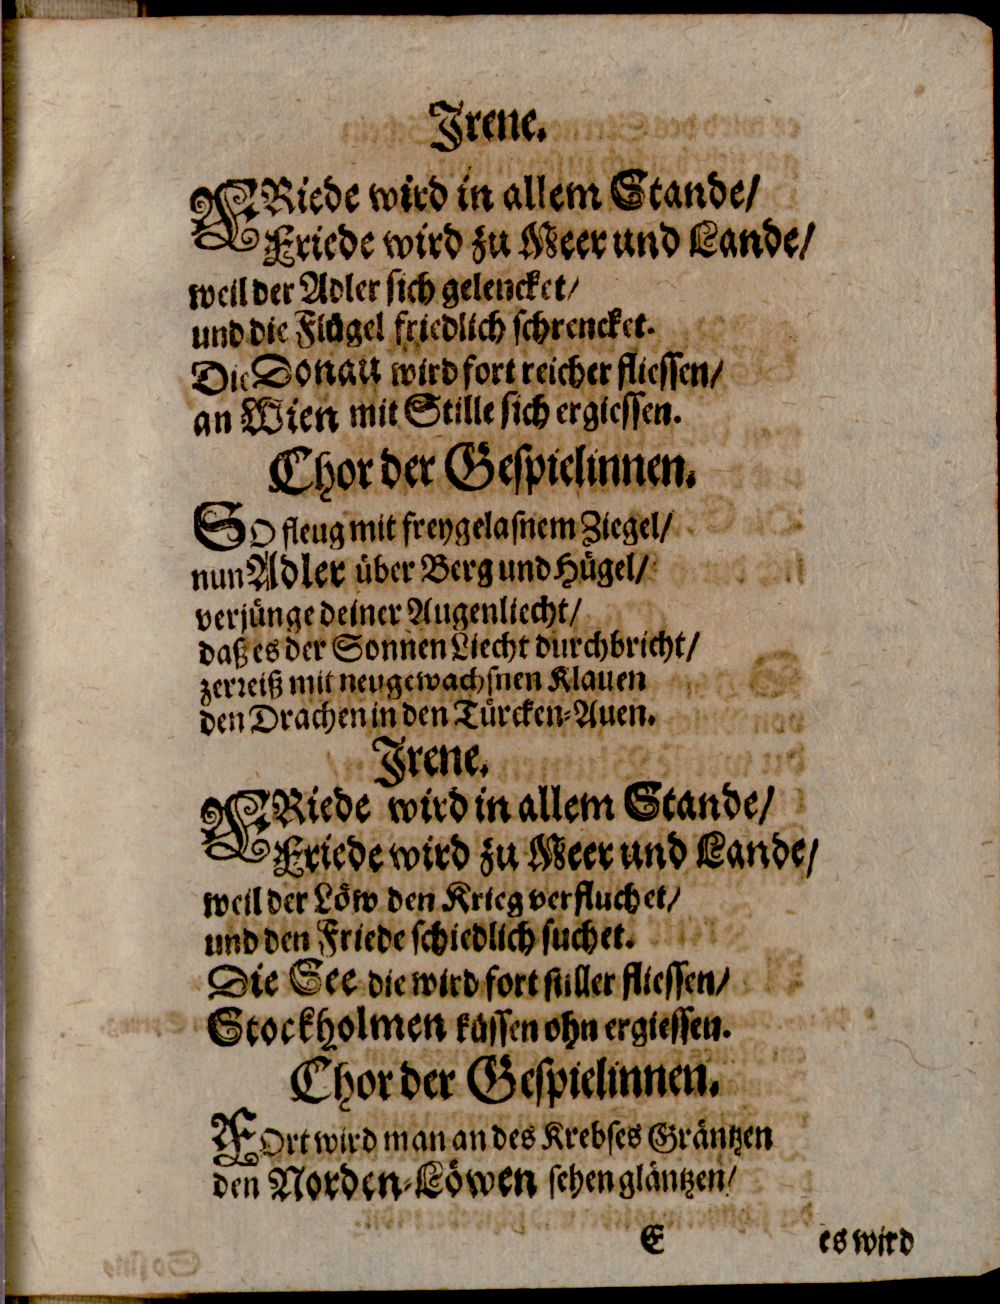 Irene.
FRiede wird in allem Stande/
Friede wird zu Meer und Lande/
weil der Adler sich gelencket/
und die Flügel friedlich schrencket.
Die Donau wird fort reicher fliessen/
an Wien mit Stille sich ergiessen.
Chor der Gespielinnen.
SO fleug mit freygelasnem Ziegel/
nun Adler über Berg und Hügel/
verjünge deiner Augenliecht/
daß es der Sonnen Liecht durchbricht/
zerreiß mit neugewachsnen Klauen
den Drachen in den Türcken-Auen.
Irene.
FRiede wird in allem Stande/
Friede wird zu Meer und Lande/
weil der Löw den Krieg verfluchet/
und den Friede schiedlich suchet.
Die See die wird fort stiller fliessen/
Stockholmen küssen ohn ergiessen.
Chor der Gespielinnen.
FOrt wird man an des Krebses Gräntzen
den Norden-Löwen sehen gläntzen/
E es wird